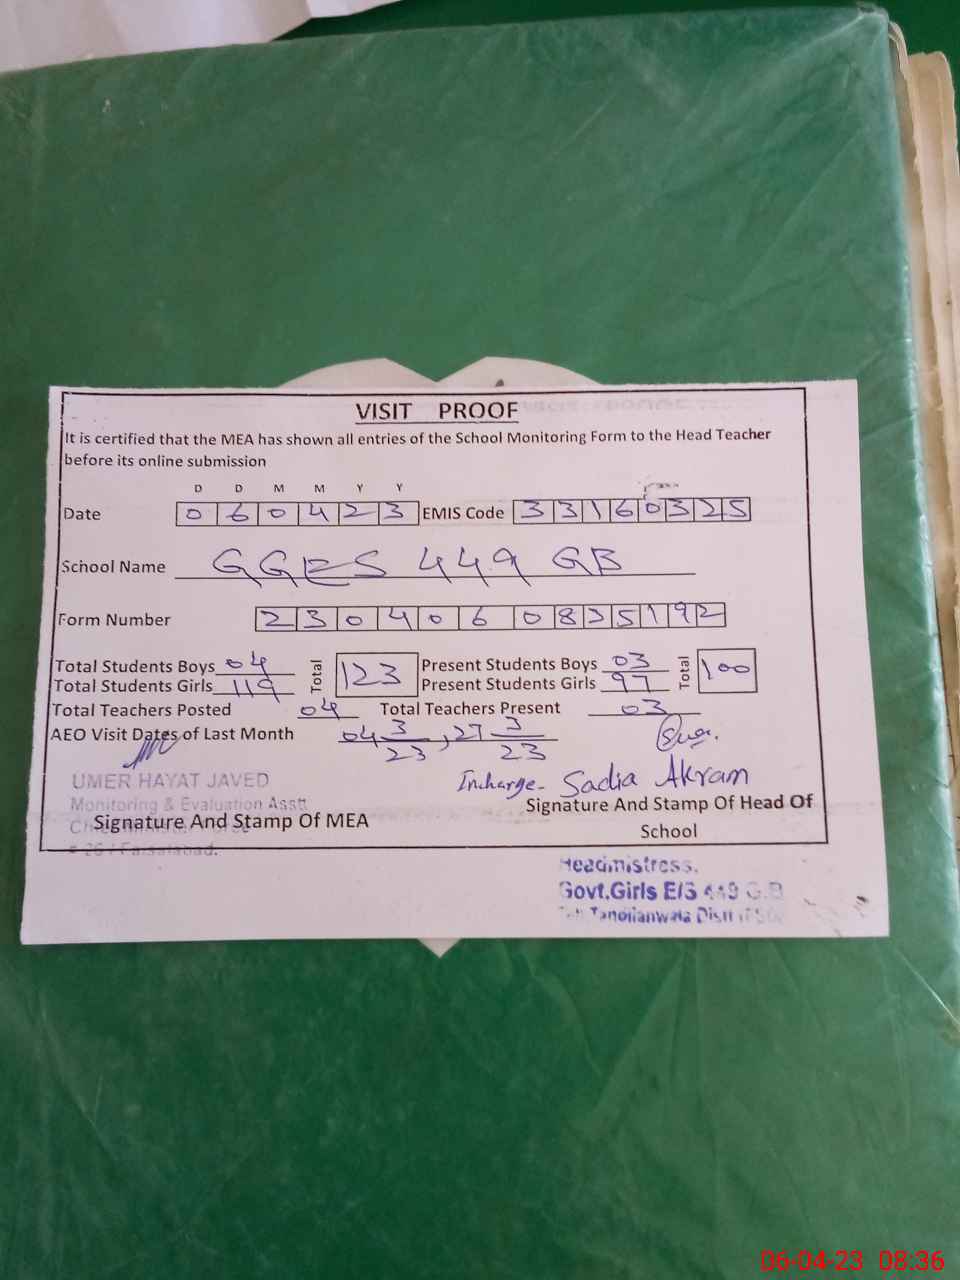 VISIT PROOF
It is certified that the MEA has shown all entries of the School Monitoring Form to the Head Teacher
before its online submission
D D M M Y Y
Date 0 6 0 4 2 3 EMIS Code 3 3 1 6 0 3 2 5
School Name GGES 449 GB
Form Number 2 3 0 4 0 6 0 8 3 5 1 9 2
Total Students Boys 04 Total 123 Present Students Boys 03 Total 100
Total Students Girls 119 Present Students Girls 97
Total Teachers Posted 04 Total Teachers Present 03
AEO Visit Dates of Last Month 04 3/23, 27 3/23
UMER HAYAT JAVED Incharge- Sadia Akram
Monitoring & Evaluation Asstt Signature And Stamp Of Head Of
Signature And Stamp Of MEA School
Faisalabad.
Headmistress.
Govt.Girls E/S 449 G.B
Tandlianwala Distt
06-04-23 08:36